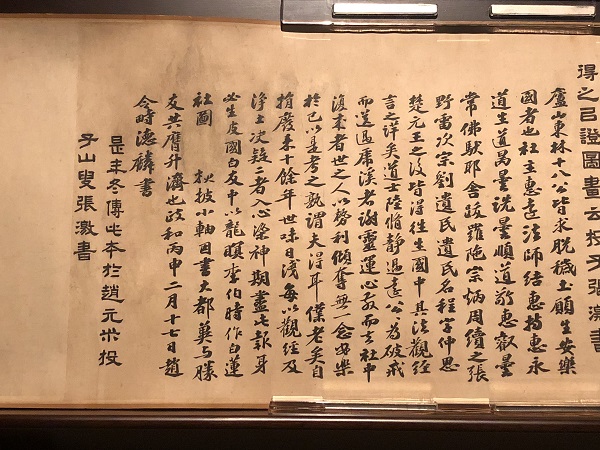 得之㠯證圖書云投子張激書
廬山東林十八公皆求脫穢土願生安樂
國者也社主惠遠法師結惠持惠永
道生道昺曇詵曇順道敬惠叡曇
常佛馱耶舍跋羅陁宗炳周續之張
野雷次宗劉遺民遺民名程字仲思
楚元王之後皆得往生國中具法觀經
言之詳矣道士陸脩靜過遠公為破戒
而送過虎溪者謝靈運心亂而亡社中
復來者世之人以勢利傾奪無一念安樂
於己以是考之孰謂夫得耳僕老矣自
捐廢來十餘年世味日淺每以觀經及
淨土決疑二者入心染神期盡此報身
必生彼國自友中以龍眠李伯時作白蓮
社圖 披小軸因書大都冀与勝
友共膺升濟也政和丙申二月十七日趙
令時德麟書
是年冬傳此本於趙元 投
子山叟張激書